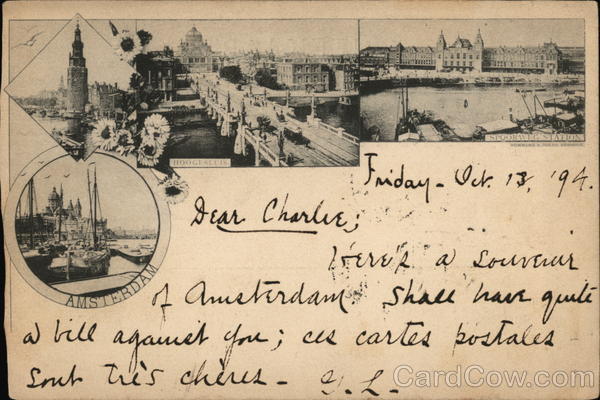 HOOGESLUIS.
SPOORWEG-STATION
AMSTERDAM
Friday - Oct. 13, '94.
Dear Charlie;
Here's a souvenir
of Amsterdam. Shall have quite
a bill against you; ces cartes postales
sont très chères - Y. L.
CardCow.com